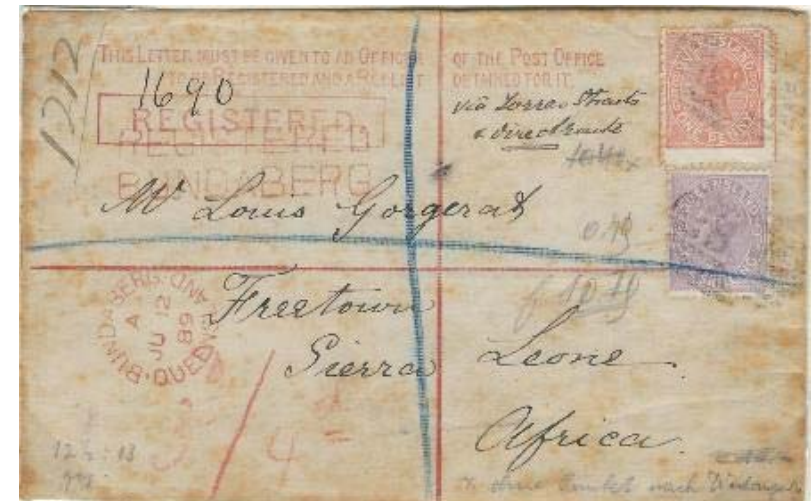 1212
THIS LETTER MUST BE GIVEN TO AN OFFICER OF THE POST OFFICE
TO BE REGISTERED AND A RECEIPT OBTAINED FOR IT.
1690
REGISTERED
REGISTERED
BUNDABERG
via Torres Straits
& direct route
Mr Louis Gorgerat
0.79
10 79
Freetown
Sierra Leone
Africa
BUNDABERG QUEENSLAND
A
JU 12
89
4
12 13
QUEENSLAND
ONE PENNY
QUEENSLAND